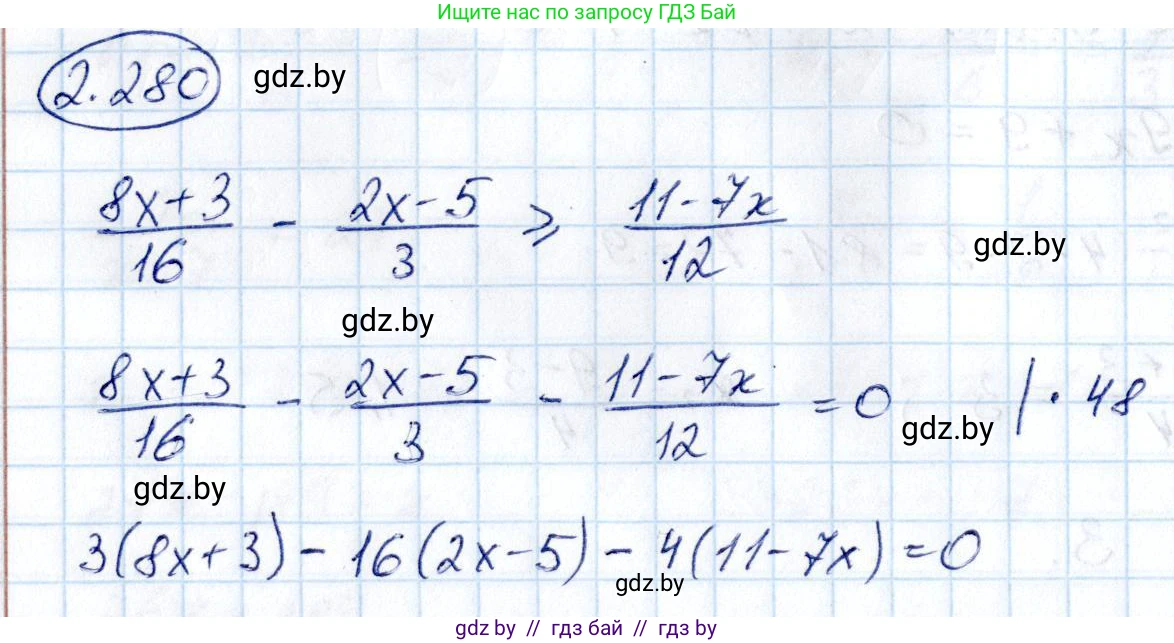 Ищите нас по запросу ГДЗ Бай
2.280 gdz.by
(8x+3)/16 - (2x-5)/3 ⩾ (11-7x)/12
gdz.by
gdz.by
(8x+3)/16 - (2x-5)/3 - (11-7x)/12 = 0 | · 48
gdz.by
gdz.by
3(8x+3) - 16(2x-5) - 4(11-7x) = 0
gdz.by
gdz.by // гдз бай // гдз by